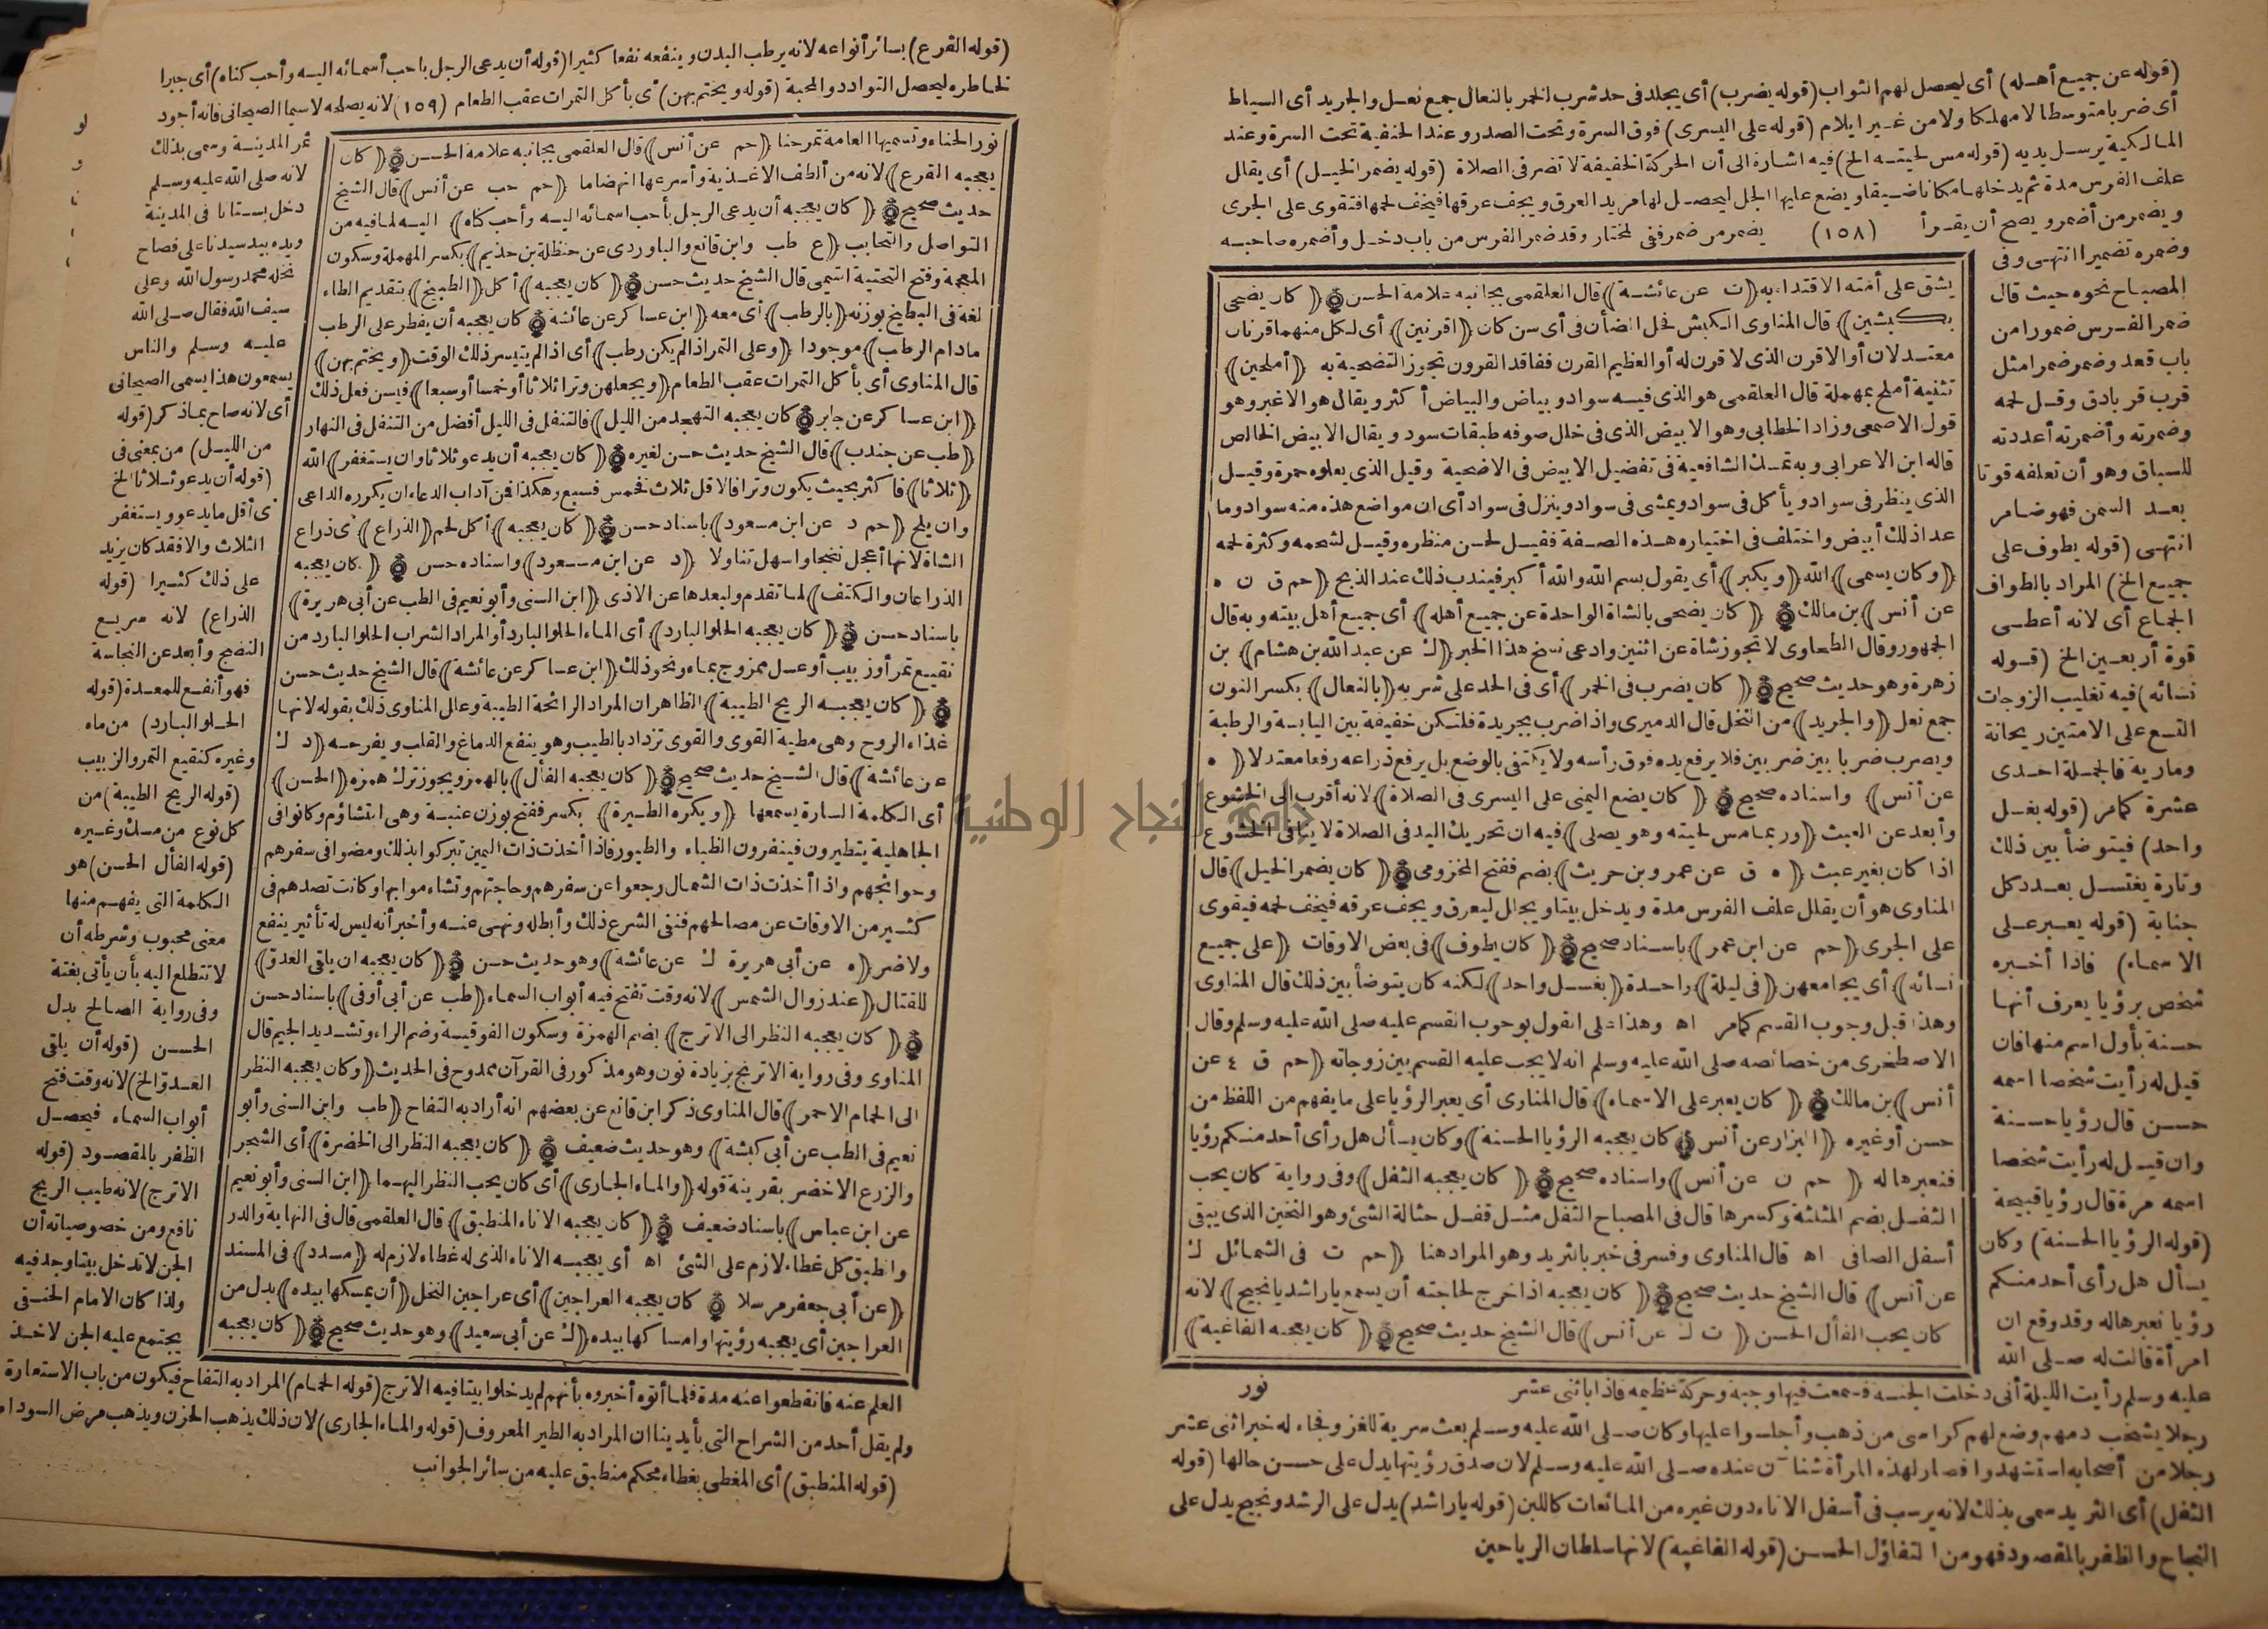 (قوله عن جميع أهله) أى ليحصل لهم الثواب (قوله يضرب) أى يجلد فى حد شرب الخمر بالنعال جمع نعل والجريد أى السياط
أى ضربا متوسطا لا مهلكا ولا من غير ايلام (قوله على اليسرى) فوق السرة وتحت الصدر وعند الحنفية تحت السرة وعند
المالكية يرسل يديه (قوله مس لحيته الخ) فيه اشارة الى أن الحركة الخفيفة لا تضر فى الصلاة (قوله يضمر الخيل) أى يقلل
علف الفرس مدة ثم يدخلها مكانا ضيقا ويضع عليها الجل ليحصل لها مزيد العرق ويجف عرقها فيخف لحمها فتقوى على الجرى
ويضمر من أضمر ويصح أن يقرأ (١٥٨) يضمر من ضمر ففى المختار وقد ضمر الفرس من باب دخل وأضمره صاحبه
وضمره تضميرا انتهى وفى
المصباح نحوه حيث قال
ضمر الفرس ضمورا من
باب قعد وضمر ضمرا مثل
قرب قربا دق وقل لحمه
وضمرته وأضمرته أعددته
للسباق وهو أن تعلفه قوتا
بعد السمن فهو ضامر
انتهى (قوله يطوف على
جميع الخ) المراد بالطواف
الجماع أى لانه أعطى
قوة أربعين الخ (قوله
نسائه) فيه تغليب الزوجات
التسع على الامتين ريحانة
ومارية فالجملة احدى
عشرة كمامر (قوله بغسل
واحد) فيتوضأ بين ذلك
وتارة يغتسل بعدد كل
جنابة (قوله يعبر على
الاسماء) فاذا أخبره
شخص برؤيا يعرف أنها
حسنة بأول اسم منها فان
قيل له رأيت شخصا اسمه
حسن قال رؤيا حسنة
وان قيل له رأيت شخصا
اسمه مرة قال رؤيا قبيحة
(قوله الرؤيا الحسنة) وكان
يسأل هل رأى أحد منكم
رؤيا نعبرها له وقد وقع ان
امرأة قالت له صلى الله
يشق على أمته الاقتداء به (ت عن عائشة) قال العلقمى بجانبه علامة الحسن (كان يضحى
بكبشين) قال المناوى الكبش فحل الضأن فى أى سن كان (اقرنين) أى لكل منهما قرنان
معتدلان أو الاقرن الذى لا قرن له أو العظيم القرن ففاقد القرون تجوز التضحية به (أملحين)
تثنية أملح بمهملة قال العلقمى هو الذى فيه سواد وبياض والبياض أكثر ويقال هو الاغبر وهو
قول الاصمعى وزاد الخطابى وهو الابيض الذى فى خلل صوفه طبقات سود ويقال الابيض الخالص
قاله ابن الاعرابى وبه تمسك الشافعية فى تفضيل الابيض فى الاضحية وقيل الذى يعلوه حمرة وقيل
الذى ينظر فى سواد ويأكل فى سواد ويمشى فى سواد وينزل فى سواد أى ان مواضع هذه منه سواد وما
عدا ذلك أبيض واختلف فى اختياره هذه الصفة فقيل لحسن منظره وقيل لشحمه وكثرة لحمه
(وكان يسمى) الله (ويكبر) أى يقول بسم الله والله أكبر فيندب ذلك عند الذبح (حم ق ن ه
عن أنس) بن مالك (كان يضحى بالشاة الواحدة عن جميع أهله) أى جميع أهل بيته وبه قال
الجمهور وقال الطحاوى لا تجوز شاة عن اثنين وادعى نسخ هذا الخبر (ك عن عبد الله بن هشام) بن
زهرة وهو حديث صحيح (كان يضرب فى الخمر) أى فى الحد على شربه (بالنعال) بكسر النون
جمع نعل (والجريد) من النخل قال الدميرى واذا ضرب بجريدة فلتكن خفيفة بين اليابسة والرطبة
ويضرب ضربا بين ضربين فلا يرفع يده فوق رأسه ولا يكتفى بالوضع بل يرفع ذراعه رفعا معتدلا (ه
عن أنس) واسناده صحيح (كان يضع اليمنى على اليسرى فى الصلاة) لانه أقرب الى الخشوع
وأبعد عن العبث (وربما مس لحيته وهو يصلى) فيه ان تحريك اليد فى الصلاة لا ينافى الخشوع
اذا كان بغير عبث (ه ق عن عمرو بن حريث) بضم ففتح المخزومى (كان يضمر الخيل) قال
المناوى هو أن يقلل علف الفرس مدة ويدخل بيتا ويجلل ليعرق ويجف عرقه فيخف لحمه فيقوى
على الجرى (حم عن ابن عمر) باسناد صحيح (كان يطوف) فى بعض الاوقات (على جميع
نسائه) أى يجامعهن (فى ليلة) واحدة (بغسل واحد) لكنه كان يتوضأ بين ذلك قال المناوى
وهذا قبل وجوب القسم كمامر اه وهذا على القول بوجوب القسم عليه صلى الله عليه وسلم وقال
الاصطخرى من خصائصه صلى الله عليه وسلم انه لا يجب عليه القسم بين زوجاته (حم ق ٤ عن
أنس) بن مالك (كان يعبر على الاسماء) قال المناوى أى يعبر الرؤيا على ما يفهم من اللفظ من
حسن أو غيره (البزار عن أنس كان يعجبه الرؤيا الحسنة) وكان يسأل هل رأى أحد منكم رؤيا
فنعبرها له (حم ن عن أنس) واسناده صحيح (كان يعجبه الثفل) وفى رواية كان يحب
الثفل بضم المثلثة وكسرها قال فى المصباح الثفل مثل قفل حثالة الشئ وهو الثخين الذى يبقى
أسفل الصافى اه قال المناوى وفسر فى خبر بالثريد وهو المراد هنا (حم ت فى الشمائل ك
عن أنس) قال الشيخ حديث صحيح (كان يعجبه اذا خرج لحاجته أن يسمع يا راشد يا نجيح) لانه
كان يحب الفأل الحسن (ت ك عن أنس) قال الشيخ حديث صحيح (كان يعجبه الفاغية)
نور
عليه وسلم رأيت الليلة أنى دخلت الجنة فسمعت فيها وجبة وحركة عظيمة فاذا باثنى عشر
رجلا يشخب دمهم وضع لهم كراسى من ذهب وأجلسوا عليها وكان صلى الله عليه وسلم بعث سرية للغزو فجاء له خبر اثنى عشر
رجلا من أصحابه استشهدوا فصار لهذه المرأة شأن عنده صلى الله عليه وسلم لان صدق رؤيتها يدل على حسن حالها (قوله
الثفل) أى الثريد سمى بذلك لانه يرسب فى أسفل الاناء دون غيره من المائعات كاللبن (قوله يا راشد) يدل على الرشد ونجيح يدل على
النجاح والظفر بالمقصود فهو من التفاؤل الحسن (قوله الفاغية) لانها سلطان الرياحين
(قوله القرع) بسائر أنواعه لانه يرطب البدن وينفعه نفعا كثيرا (قوله أن يدعى الرجل باحب أسمائه اليه وأحب كناه) أى جبرا
لخاطره ليحصل التوادد والمحبة (قوله ويختم بهن) أى بأكل التمرات عقب الطعام (١٥٩) لانه يصلحه لا سيما الصيحانى فانه أجود
تمر المدينة وسمى بذلك
لانه صلى الله عليه وسلم
دخل بستانا فى المدينة
ويده بيد سيدنا على فصاح
نخله محمد رسول الله وعلى
سيف الله فقال صلى الله
عليه وسلم والناس
يسمعون هذا يسمى الصيحانى
أى لانه صاح بما ذكر (قوله
من الليل) من بمعنى فى
(قوله أن يدعو ثلاثا الخ)
أى أقل ما يدعو ويستغفر
الثلاث والا فقد كان يزيد
على ذلك كثيرا (قوله
الذراع) لانه سريع
النضج وأبعد عن النجاسة
فهو أنفع للمعدة (قوله
الحلو البارد) من ماء
وغيره كنقيع التمر والزبيب
(قوله الريح الطيبة) من
كل نوع من مسك وغيره
(قوله الفأل الحسن) هو
الكلمة التى يفهم منها
معنى محبوب وشرطه أن
لا تتطلع اليه بأن يأتى بغتة
وفى رواية الصالح بدل
الحسن (قوله أن يلقى
العدو الخ) لانه وقت فتح
أبواب السماء فيحصل
الظفر بالمقصود (قوله
الاترج) لانه طيب الريح
نافع ومن خصوصياته أن
الجن لا تدخل بيتا وجد فيه
ولذا كان الامام الخنفى
يجتمع عليه الجن لاخذ
نور الحناء وتسميها العامة تمر حنا (حم عن أنس) قال العلقمى بجانبه علامة الحسن (كان
يعجبه القرع) لانه من ألطف الاغذية وأسرعها انهضاما (حم حب عن أنس) قال الشيخ
حديث صحيح (كان يعجبه أن يدعى الرجل بأحب اسمائه اليه وأحب كناه) اليه لما فيه من
التواصل والتحابب (ع طب وابن قانع والباوردى عن حنظلة بن حذيم) بكسر المهملة وسكون
المعجمة وفتح التحتية انتمى قال الشيخ حديث حسن (كان يعجبه) أكل (الطبيخ) بتقديم الطاء
لغة فى البطيخ بوزنه (بالرطب) أى معه (ابن عساكر عن عائشة كان يعجبه أن يفطر على الرطب
مادام الرطب) موجودا (وعلى التمر اذا لم يكن رطب) أى اذا لم يتيسر ذلك الوقت (ويختم بهن)
قال المناوى أى بأكل التمرات عقب الطعام (ويجعلهن وترا ثلاثا أو خمسا أو سبعا) فيسن فعل ذلك
(ابن عساكر عن جابر كان يعجبه التهجد من الليل) فالتنفل فى الليل أفضل من التنفل فى النهار
(طب عن جندب) قال الشيخ حديث حسن لغيره (كان يعجبه أن يدعو ثلاثا وان يستغفر) الله
(ثلاثا) فأكثر بحيث يكون وترا فالاقل ثلاث فخمس فسبع وهكذا فمن آداب الدعاء ان يكرره الداعى
وان يلح (حم د عن ابن مسعود) باسناد حسن (كان يعجبه) أكل لحم (الذراع) أى ذراع
الشاة لانها أعجل نضجا واسهل تناولا (د عن ابن مسعود) واسناده حسن (كان يعجبه
الذراعان والكتف) لما تقدم ولبعدها عن الاذى (ابن السنى وأبو نعيم فى الطب عن أبى هريرة)
باسناد حسن (كان يعجبه الحلو البارد) أى الماء الحلو البارد أو المراد الشراب الحلو البارد من
نقيع تمر أو زبيب أو عسل ممزوج بماء ونحو ذلك (ابن عساكر عن عائشة) قال الشيخ حديث حسن
(كان يعجبه الريح الطيبة) الظاهر ان المراد الرائحة الطيبة وعلل المناوى ذلك بقوله لانها
غذاء الروح وهى مطية القوى والقوى تزداد بالطيب وهو ينفع الدماغ والقلب ويفرحه (د ك
عن عائشة) قال الشيخ حديث صحيح (كان يعجبه الفأل) بالهمز ويجوز ترك همزه (الحسن)
أى الكلمة السارة يسمعها (ويكره الطيرة) بكسر ففتح بوزن عنبة وهى التشاؤم وكانوا فى
الجاهلية يتطيرون فينفرون الظباء والطيور فاذا أخذت ذات اليمين تبركوا بذلك ومضوا فى سفرهم
وحوائجهم واذا أخذت ذات الشمال رجعوا عن سفرهم وحاجتهم وتشاءموا بها وكانت تصدهم فى
كثير من الاوقات عن مصالحهم فنفى الشرع ذلك وأبطله ونهى عنه وأخبر أنه ليس له تأثير ينفع
ولا ضر (ه عن أبى هريرة ك عن عائشة) وهو حديث حسن (كان يعجبه ان يلقى العدو)
للقتال (عند زوال الشمس) لانه وقت تفتح فيه أبواب السماء (طب عن أبى أوفى) باسناد حسن
(كان يعجبه النظر الى الاترج) بضم الهمزة وسكون الفوقية وضم الراء وتشديد الجيم قال
المناوى وفى رواية الاترنج بزيادة نون وهو مذكور فى القرآن ممدوح فى الحديث (وكان يعجبه النظر
الى الحمام الاحمر) قال المناوى ذكر ابن قانع عن بعضهم انه أراد به التفاح (طب وابن السنى وأبو
نعيم فى الطب عن أبى كبشة) وهو حديث ضعيف (كان يعجبه النظر الى الخضرة) أى الشجر
والزرع الاخضر بقرينة قوله (والماء الجارى) أى كان يحب النظر اليهما (ابن السنى وأبو نعيم
عن ابن عباس) باسناد ضعيف (كان يعجبه الاناء المنطبق) قال العلقمى قال فى النهاية والدر
والطبق كل غطاء لازم على الشئ اه أى يعجبه الاناء الذى له غطاء لازم له (مسدد) فى المسند
(عن أبى جعفر مرسلا كان يعجبه العراجين) أى عراجين النخل (أن يمسكها بيده) بدل من
العراجين أى يعجبه رؤيتها وامساكها بيده (ك عن أبى سعيد) وهو حديث صحيح (كان يعجبه
العلم عنه فانقطعوا عنه مدة فلما أتوه أخبروه بأنهم لم يدخلوا بيتا فيه الاترج (قوله الحمام) المراد به التفاح فيكون من باب الاستعارة
ولم يقل أحد من الشراح التى بأيدينا ان المراد به الطير المعروف (قوله والماء الجارى) لان ذلك يذهب الحزن ويذهب مرض السوداء
(قوله المنطبق) أى المغطى بغطاء محكم منطبق عليه من سائر الجوانب
جامعة النجاح الوطنية